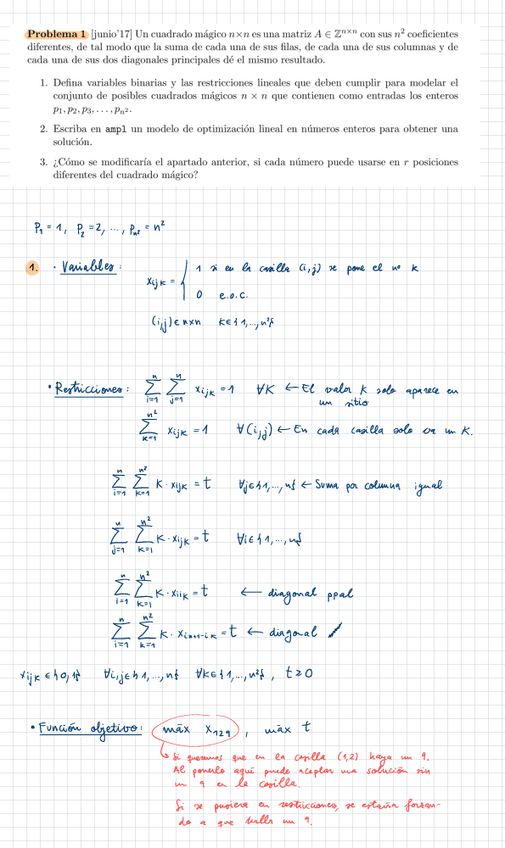 Problema 1 [junio'17] Un cuadrado mágico n×n es una matriz A ∈ ℤⁿˣⁿ con sus n² coeficientes
diferentes, de tal modo que la suma de cada una de sus filas, de cada una de sus columnas y de
cada una de sus dos diagonales principales dé el mismo resultado.
1. Defina variables binarias y las restricciones lineales que deben cumplir para modelar el
conjunto de posibles cuadrados mágicos n × n que contienen como entradas los enteros
p₁, p₂, p₃, . . . , pₙ².
2. Escriba en ampl un modelo de optimización lineal en números enteros para obtener una
solución.
3. ¿Cómo se modificaría el apartado anterior, si cada número puede usarse en r posiciones
diferentes del cuadrado mágico?
P₁ = 1, P₂ = 2, ..., Pₙ² = n²
1. · Variables:
xijk = { 1 si en la casilla (i,j) se pone el nº k
0 e.o.c.
(i,j) ∈ n×n k∈{1,...,n²}
· Restricciones: ∑_{i=1}^{n} ∑_{j=1}^{n} xijk = 1 ∀K ← El valor k solo aparece en
un sitio
∑_{k=1}^{n²} xijk = 1 ∀(i,j) ← En cada casilla solo un K.
∑_{i=1}^{n} ∑_{k=1}^{n²} K · xijk = t ∀j∈{1,...,n} ← Suma por columna igual
∑_{j=1}^{n} ∑_{k=1}^{n²} K · xijk = t ∀i∈{1,...,n}
∑_{i=1}^{n} ∑_{k=1}^{n²} K · xiik = t ← diagonal ppal
∑_{i=1}^{n} ∑_{k=1}^{n²} K · xi n+1-i k = t ← diagonal /
xijk ∈ {0,1} ∀i,j∈{1,...,n} ∀k∈{1,...,n²}, t ≥ 0
· Función objetivo: máx x129, máx t
↳ Si queremos que en la casilla (1,2) haya un 9.
Al ponerlo aquí puede aceptar una solución sin
un 9 en la casilla.
Si se pusiera en restricciones, se estaría forzan-
do a que un 9.